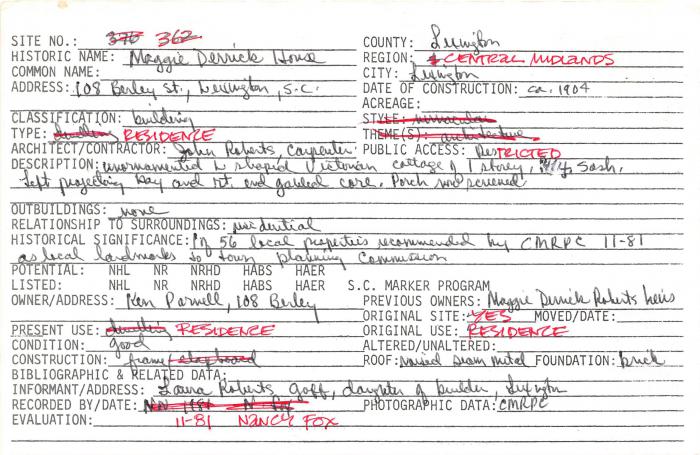 SITE NO.: 370 362 COUNTY: Lexington
HISTORIC NAME: Maggie Derrick House REGION: CENTRAL MIDLANDS
COMMON NAME: CITY: Lexington
ADDRESS: 108 Berley St., Lexington, S.C. DATE OF CONSTRUCTION: ca. 1904
ACREAGE:
CLASSIFICATION: building STYLE: vernacular
TYPE: dwelling RESIDENCE THEME(S): architecture
ARCHITECT/CONTRACTOR: John Roberts, Carpenter PUBLIC ACCESS: ResTRICTED
DESCRIPTION: unornamented L shaped Victorian cottage of 1 storey, 4/4 Sash.
Left projecting bay and rt. end gabled core. Porch now screened.
OUTBUILDINGS: none
RELATIONSHIP TO SURROUNDINGS: residential
HISTORICAL SIGNIFICANCE: 1 of 56 local properties recommended by CMRPC 11-81
as local landmarks to town planning commission
POTENTIAL: NHL NR NRHD HABS HAER
LISTED: NHL NR NRHD HABS HAER S.C. MARKER PROGRAM
OWNER/ADDRESS: Ken Parnell, 108 Berley PREVIOUS OWNERS: Maggie Derrick Roberts heirs
ORIGINAL SITE: YES MOVED/DATE:
PRESENT USE: dwelling RESIDENCE ORIGINAL USE: RESIDENCE
CONDITION: good ALTERED/UNALTERED:
CONSTRUCTION: frame/clapboard ROOF: raised seam metal FOUNDATION: brick
BIBLIOGRAPHIC & RELATED DATA:
INFORMANT/ADDRESS: Laura Roberts Goff, daughter of builder, Lexington
RECORDED BY/DATE: Nov 1981 N Fox PHOTOGRAPHIC DATA: CMRPC
EVALUATION: 11-81 NANCY FOX